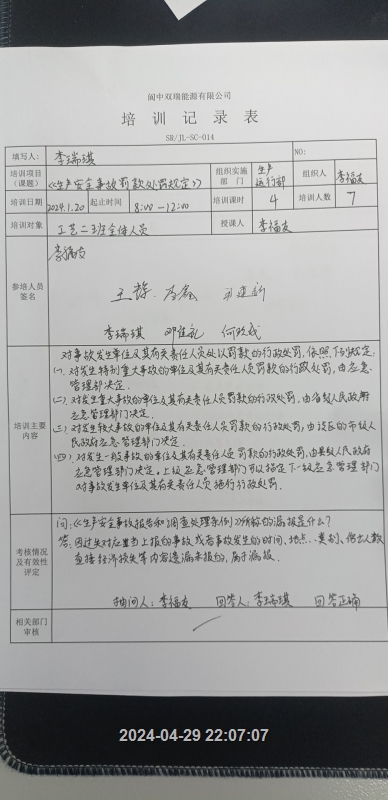 阆中双瑞能源有限公司
培 训 记 录 表
SR/JL-SC-014
填写人： 李瑞琪 NO:
培训项目（课题） 《生产安全事故罚款处罚规定》 组织实施部 门 生产运行部 组织人 李福友
培训日期 2024.1.20 起止时间 8:00-12:00 培训课时 4 培训人数 7
培训对象 工艺二班全体人员 授课人 李福友
参培人员签名
李福友
王静
李瑞琪 邓佳礼
培训主要内容
对事故发生单位及其有关责任人员处以罚款的行政处罚，依照下列规定：
(一)、对发生特别重大事故的单位及其有关责任人员罚款的行政处罚，由应急
管理部决定.
(二)、对发生重大事故的单位及其有关责任人员罚款的行政处罚，由省级人民政府
应急管理部门决定.
(三)、对发生较大事故的单位及其有关责任人员罚款的行政处罚，由设区的市级人
民政府应急管理部门决定.
(四)、对发生一般事故的单位及其有关责任人员罚款的行政处罚，由县级人民政府
应急管理部门决定。上级应急管理部门可以指定下一级应急管理部门
对事故发生单位及其有关责任人员施行行政处罚.
考核情况及有效性评定
问：《生产安全事故报告和调查处理条例》所称的漏报是什么？
答：因过失对应当上报的事故或者事故发生的时间、地点、类别、伤亡人数
直接经济损失等内容遗漏未报的，属于漏报.
抽问人：李福友 回答人：李瑞琪 回答正确
相关部门审核
2024-04-29 22:07:07